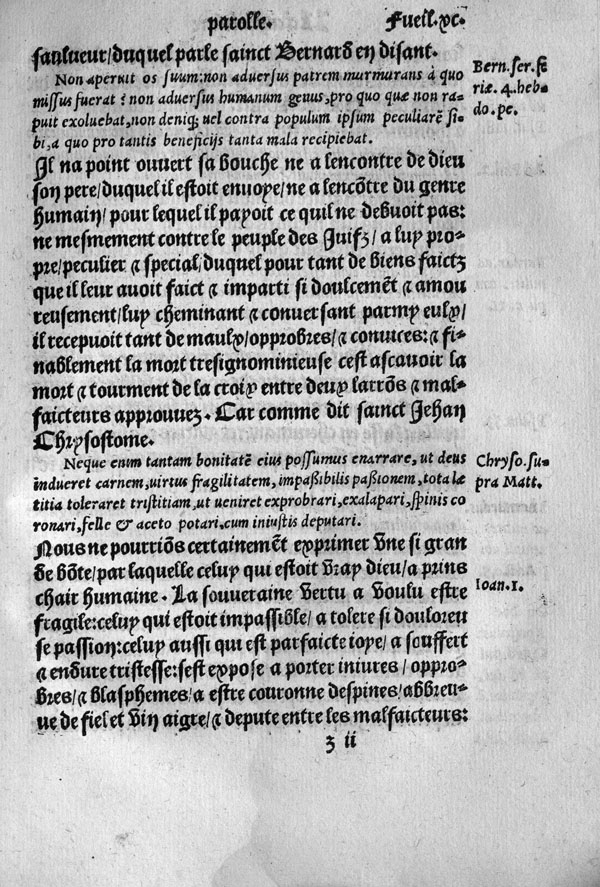 parolle. Fueil.xc.
saulueur/duquel parle sainct Bernard en disant.
Non aperuit os suum:non adversus patrem murmurans à quo
missus fuerat: non adversus humanum genus, pro quo quæ non ra-
puit exoluebat, non deniq; uel contra populum ipsum peculiarē si-
bi, a quo pro tantis beneficijs tanta mala recipiebat.
Bern.ser.fe
riæ. 4. heb-
do. pe.
Il na point ouvert sa bouche ne a lencontre de dieu
son pere/duquel il estoit envoye/ne a lencōtre du genre
humain/pour lequel il payoit ce quil ne debuoit pas:
ne mesmement contre le peuple des Juifz/a luy pro-
pre/peculier & special/duquel pour tant de biens faictz
que il leur avoit faict & imparti si doulcemēt & amou
reusement/luy cheminant & conversant parmy eulx/
il recepuoit tant de maulx/opprobres/& convices:& fi-
nablement la mort tresignominieuse cest ascavoir la
mort & tourment de la croix entre deux larrōs & mal-
faicteurs approuvez. Car comme dit sainct Jehan
Chrysostome.
Neque enim tantam bonitatē eius possumus enarrare, ut deus
indueret carnem, virtus fragilitatem, impaßibilis paßionem, tota læ
titia toleraret tristitiam, ut veniret exprobrari, exalapari, spinis co
ronari, felle & aceto potari, cum iniustis deputari.
Chryso.su-
pra Matt.
Nous ne pourriōs certainemēt exprimer vne si gran
de bōte/par laquelle celuy qui estoit vray dieu/a prins
chair humaine. La souveraine vertu a voulu estre
fragile:celuy qui estoit impassible/a tolere si douloreu
se passion:celuy aussi qui est parfaicte ioye/a souffert
& endure tristesse:sest expose a porter iniures/oppro-
bres/& blasphemes/a estre couronne despines/abbreu-
ue de fiel et vin aigre/& depute entre les malfaicteurs:
Ioan.1.
z ii